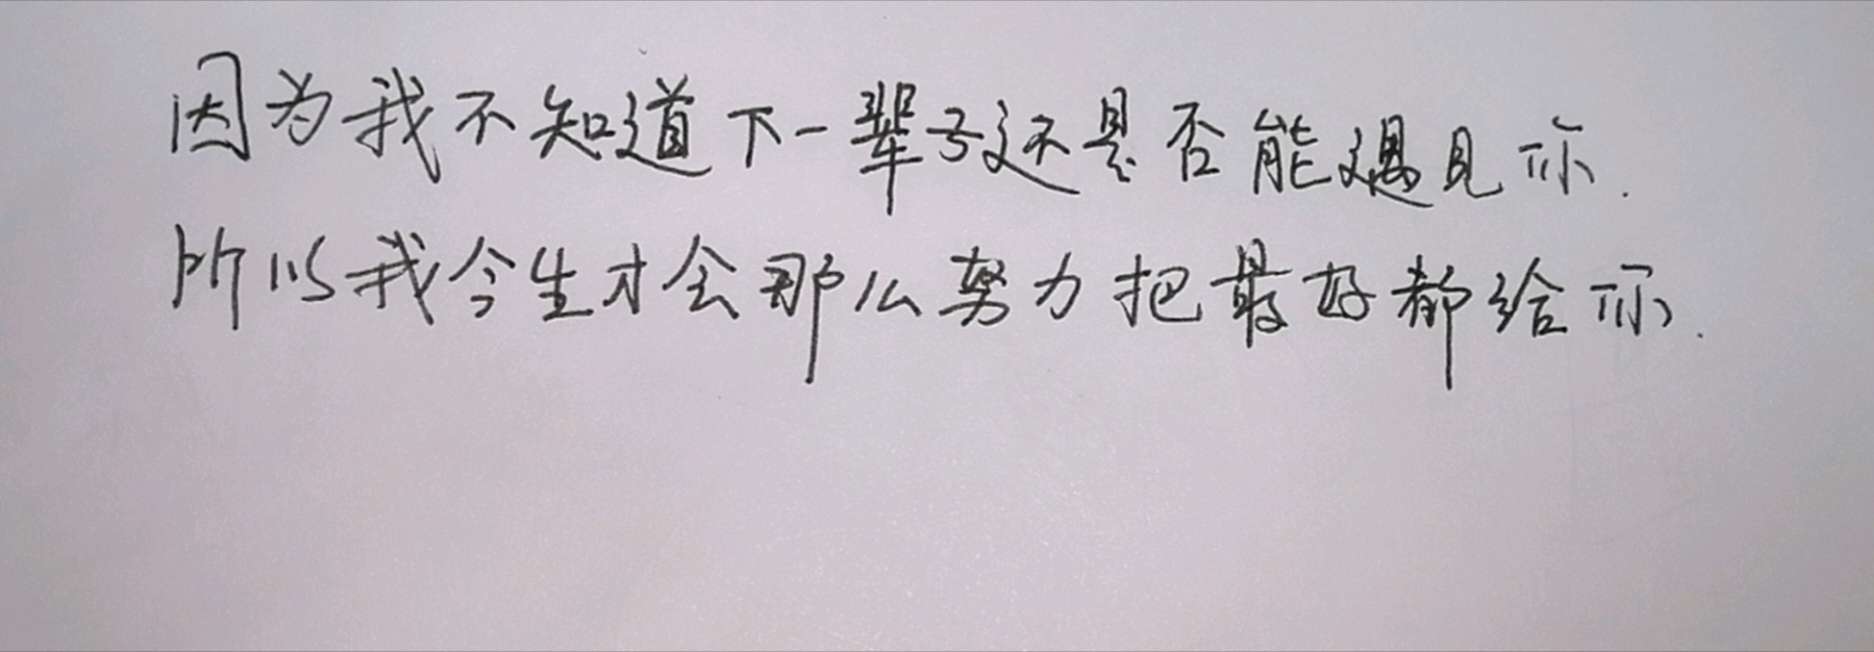 因为我不知道下一辈子还是否能遇见你.
所以我今生才会那么努力把最好都给你.